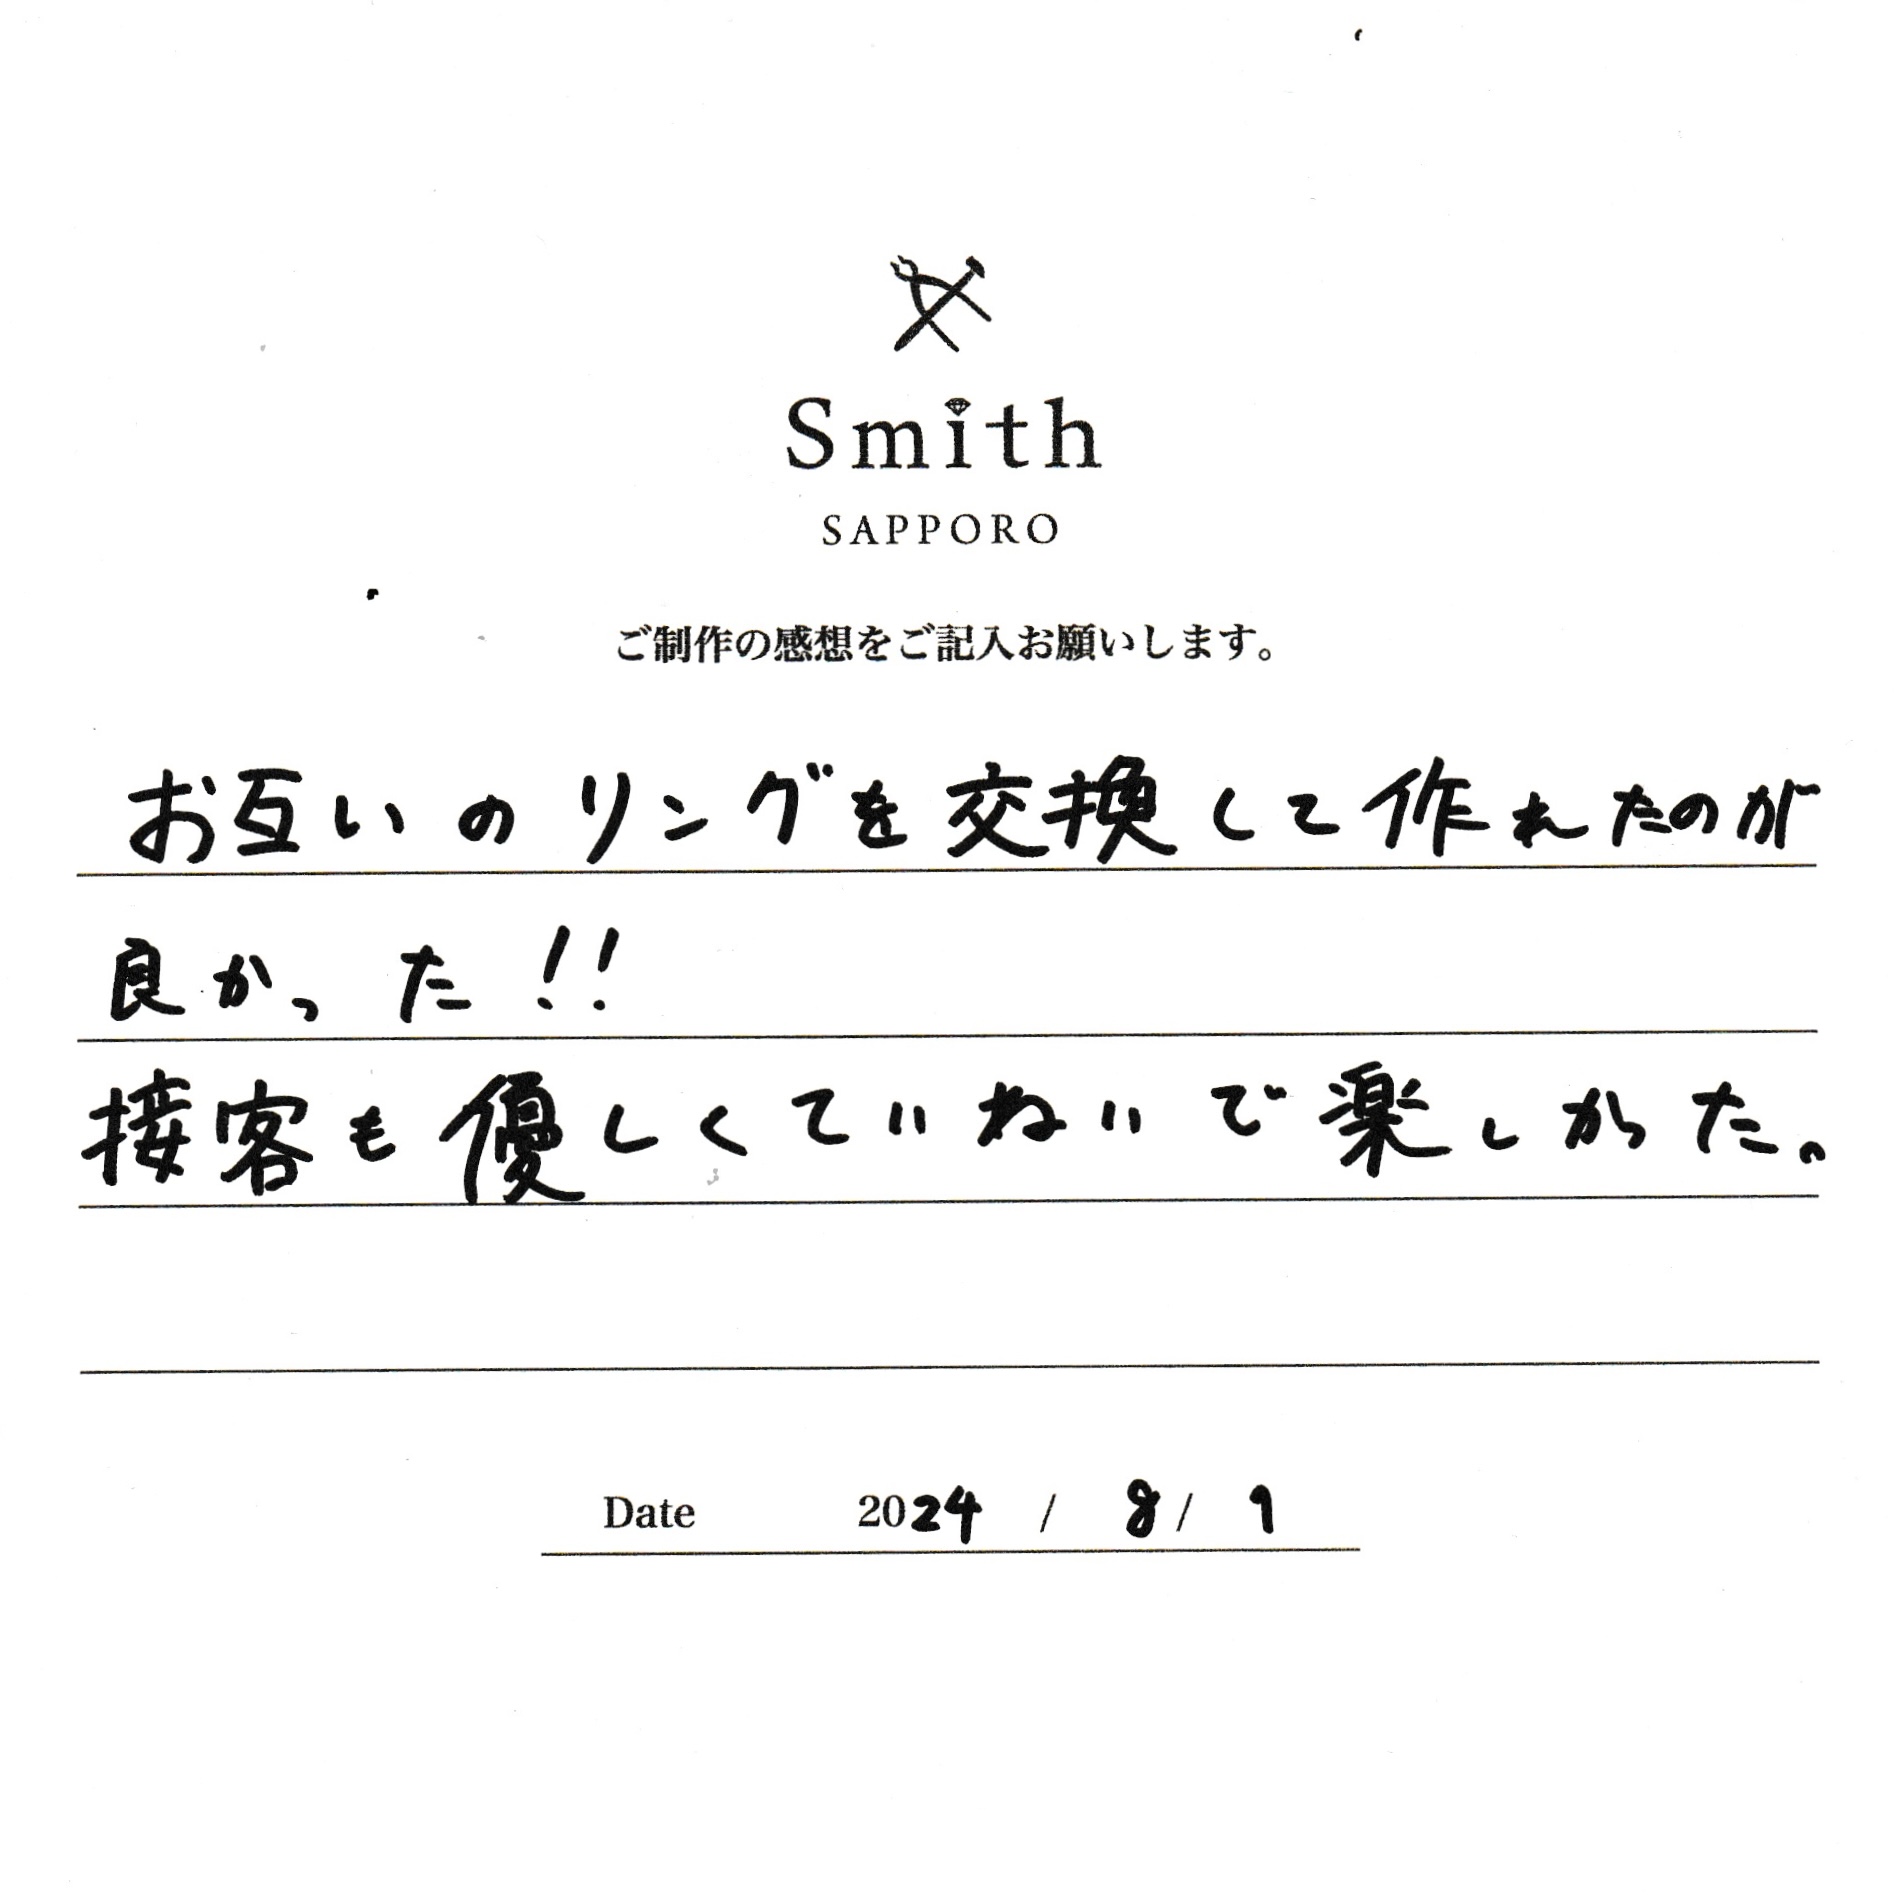 Smith
SAPPORO
ご制作の感想をご記入お願いします。
お互いのリングを交換して作れたのが
良かった!!
接客も優しくていねいで楽しかった。
Date 2024 / 8 / 9